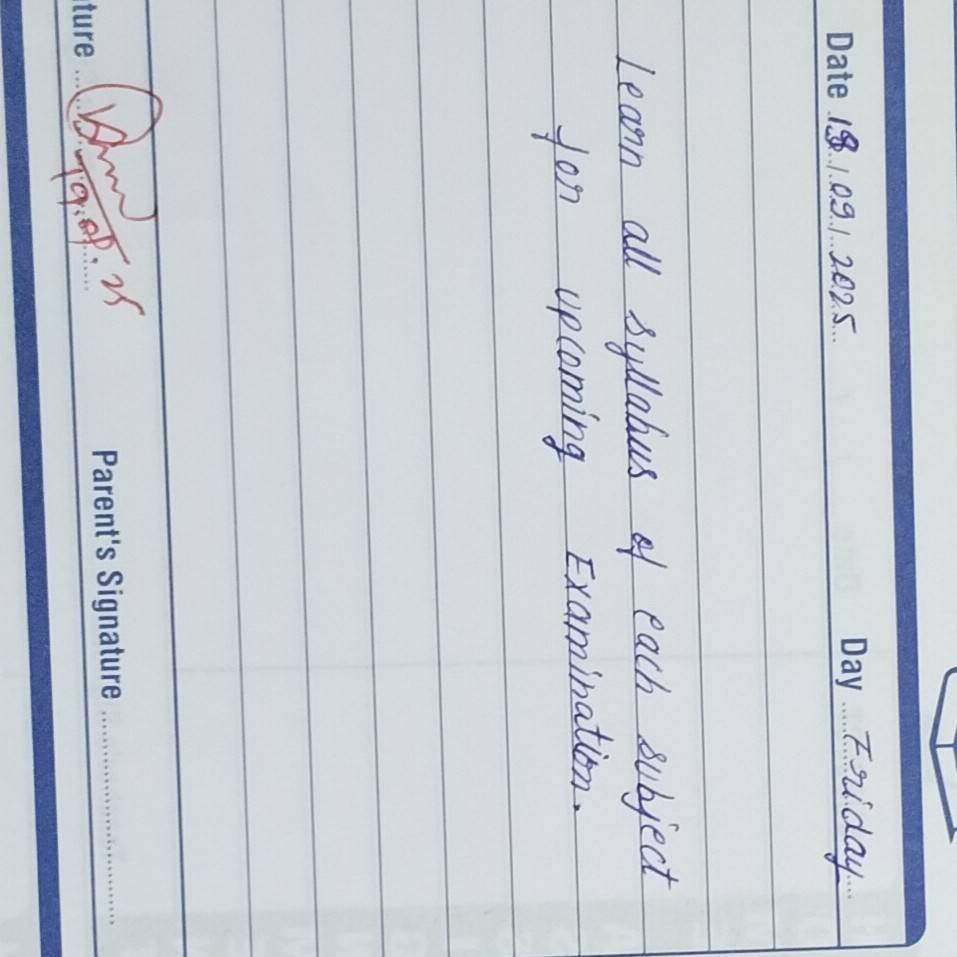 Date 19/09/2025 Day Friday
Learn all syllabus of each subject
for upcoming Examination.
ture 19.09.25 Parent's Signature